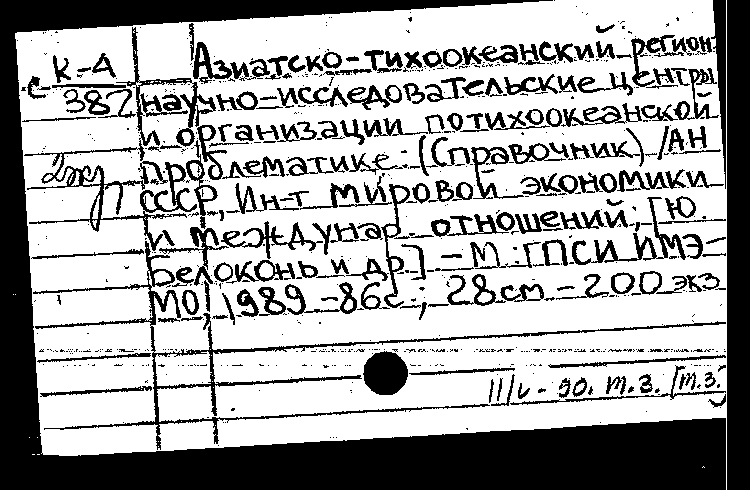 К-4
382
2жд
Азиатско-тихоокеанский регион:
научно-исследовательские центры
и организации по тихоокеанской
проблематике: (Справочник) / АН
СССР, Ин-т мировой экономики
и междунар. отношений; [Ю.
Белоконь и др] – М: ГПСИ ИМЭ-
МО, 1989 – 86с.; 28см – 200 экз
II/v - 90. т.з. [т.з.]